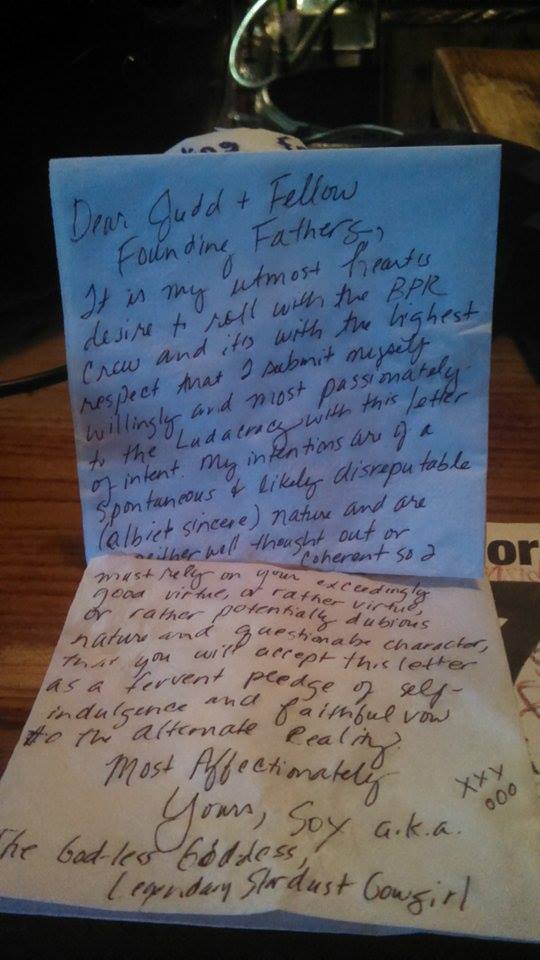 Dear Judd + Fellow
Founding Fathers,
It is my utmost hearts
desire to roll with the BPR
Crew and it's with the highest
respect that I submit myself
willingly and most passionately
to the Ludacracy with this letter
of intent. My intentions are of a
spontaneous & likely disreputable
(albiet sincere) nature and are
neither well thought out or
coherent so I
must rely on your exceedingly
good virtue, or rather virtue,
or rather potentially dubious
nature and questionabe character,
that you will accept this letter
as a fervent pledge of self-
indulgence and faithful vow
to the alternate Reality.
Most Affectionately
Yours, Soy a.k.a.
XXX
OOO
The God-less Goddess,
Legendary Stardust Cowgirl
or